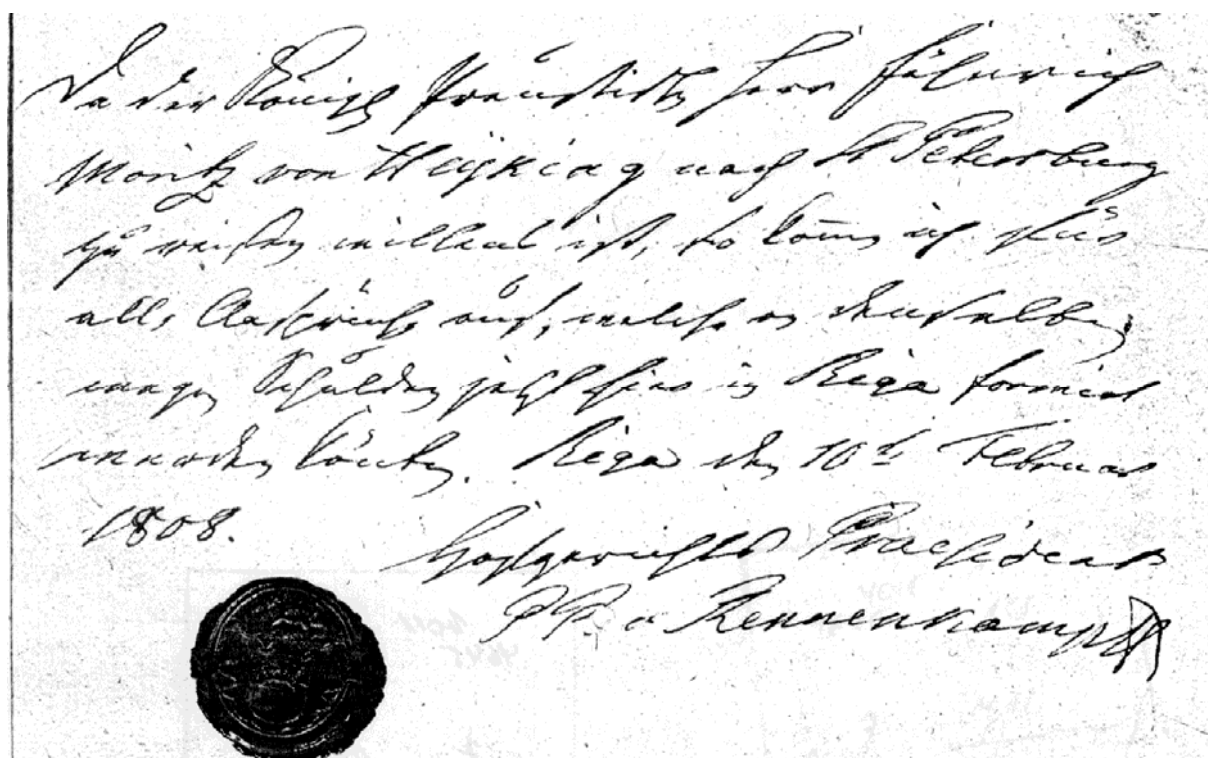 Da der Königl Preußische Herr Fähnrich
Moritz von Heyking nach St Petersburg
zu reisen willens ist, so komme ich für
alle Ansprüche auf, welche an denselben
wegen Schulden jetzt hier in Riga formirt
werden könten. Riga den 10t Februar
1808.
Hofgerichts Praesident
v Rennenkampff